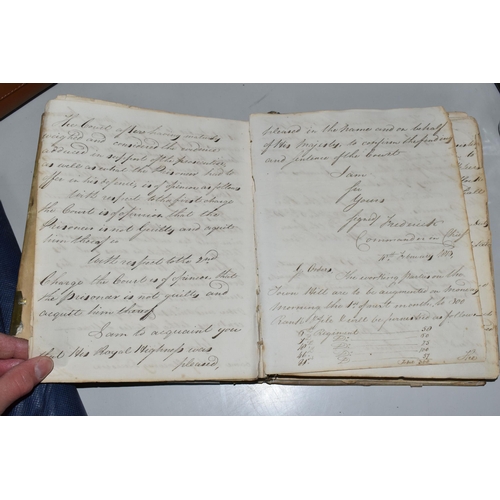 The Court after having maturely
weighed and considered the evidence
adduced in support of the prosecution
as well as what the Prisoner had to
offer in his defence, is of opinion as follows
With respect to the first charge
the Court is of opinion that the
Prisoner is not Guilty and acquits
him thereof
With respect to the 2nd
Charge the Court is of opinion that
the prisoner is not guilty and
acquits him thereof
I am to acquaint you
that His Royal Highness was
pleased,
pleased in the Name and on behalf
of His Majesty to confirm the finding
and sentence of the Court
I am
Sir
Yours
Signed Frederick
Commander in Chief
G Orders
The working parties on the
Town Hall are to be augmented on
morning the 1st month, to 300
Rank & File & will be furnished as follows
Regiment